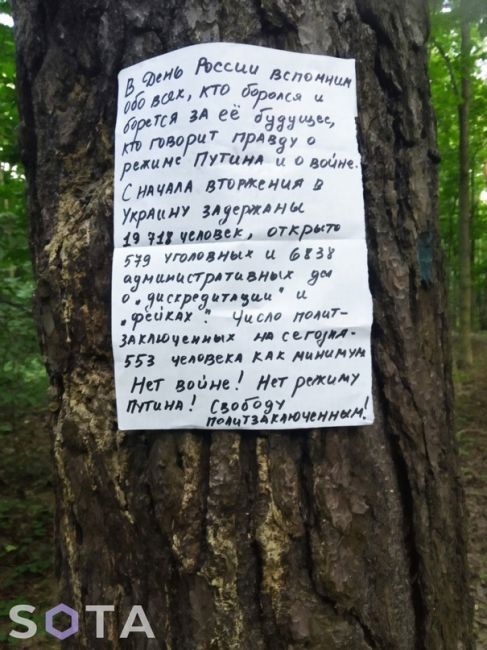 В День России вспомним
обо всех, кто боролся и
борется за её будущее,
кто говорит правду о
режиме Путина и о войне.
С начала вторжения в
Украину задержаны
19 718 человек, открыто
579 уголовных и 6838
административных дел
о „дискредитации" и
„фейках". Число полит-
заключенных на сегодня-
553 человека как минимум
Нет войне! Нет режиму
Путина! Свободу
политзаключенным!
SOTA